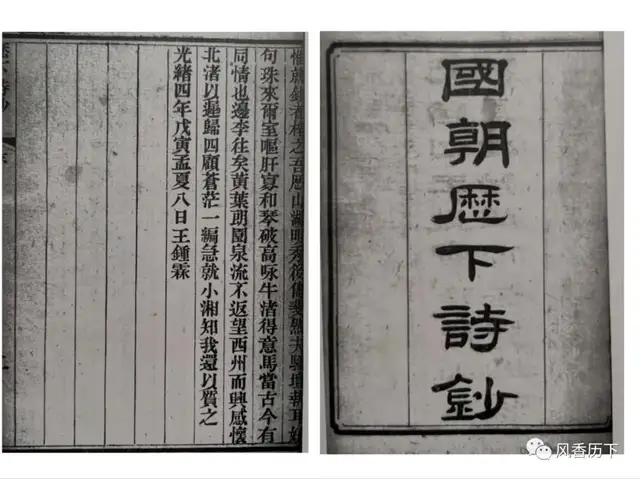 國朝歴下詩鈔
之吾歷山湖明秀後
句珠來爾室嘔肝寡和琴破高咏牛渚得意馬當古今有
同情也邊李往矣黃葉朗園泉流不返望西州而興感懷
北渚以遲歸四顧蒼茫一編急就小湘知我還以質之
光緒四年戊寅孟夏八日王鍾霖
风香历下